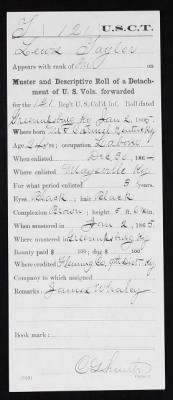 T | 121 | U.S.C.T.
Lewis Taylor
Appears with rank of Pvt. on
Muster and Descriptive Roll of a Detachment
of U. S. Vols. forwarded
for the 121 Reg't U.S. Col'd Inf. Roll dated
Greensburg Ky Jan 2, 1865.
Where born Mt. Kentucky
Age yrs; occupation Laborer
When enlisted Dec 30, 1864
Where enlisted Maysville Ky
For what period enlisted 3 years.
Eyes Black; hair Black
Complexion Brown; height 5 ft. 6 in.
When mustered in Jan 2, 1865
Where mustered in Ky
Bounty paid $ 100; due $ 100
Where credited Fleming Co, 9th Dist. Ky
Company to which assigned
Remarks: James Whaley
Book mark: